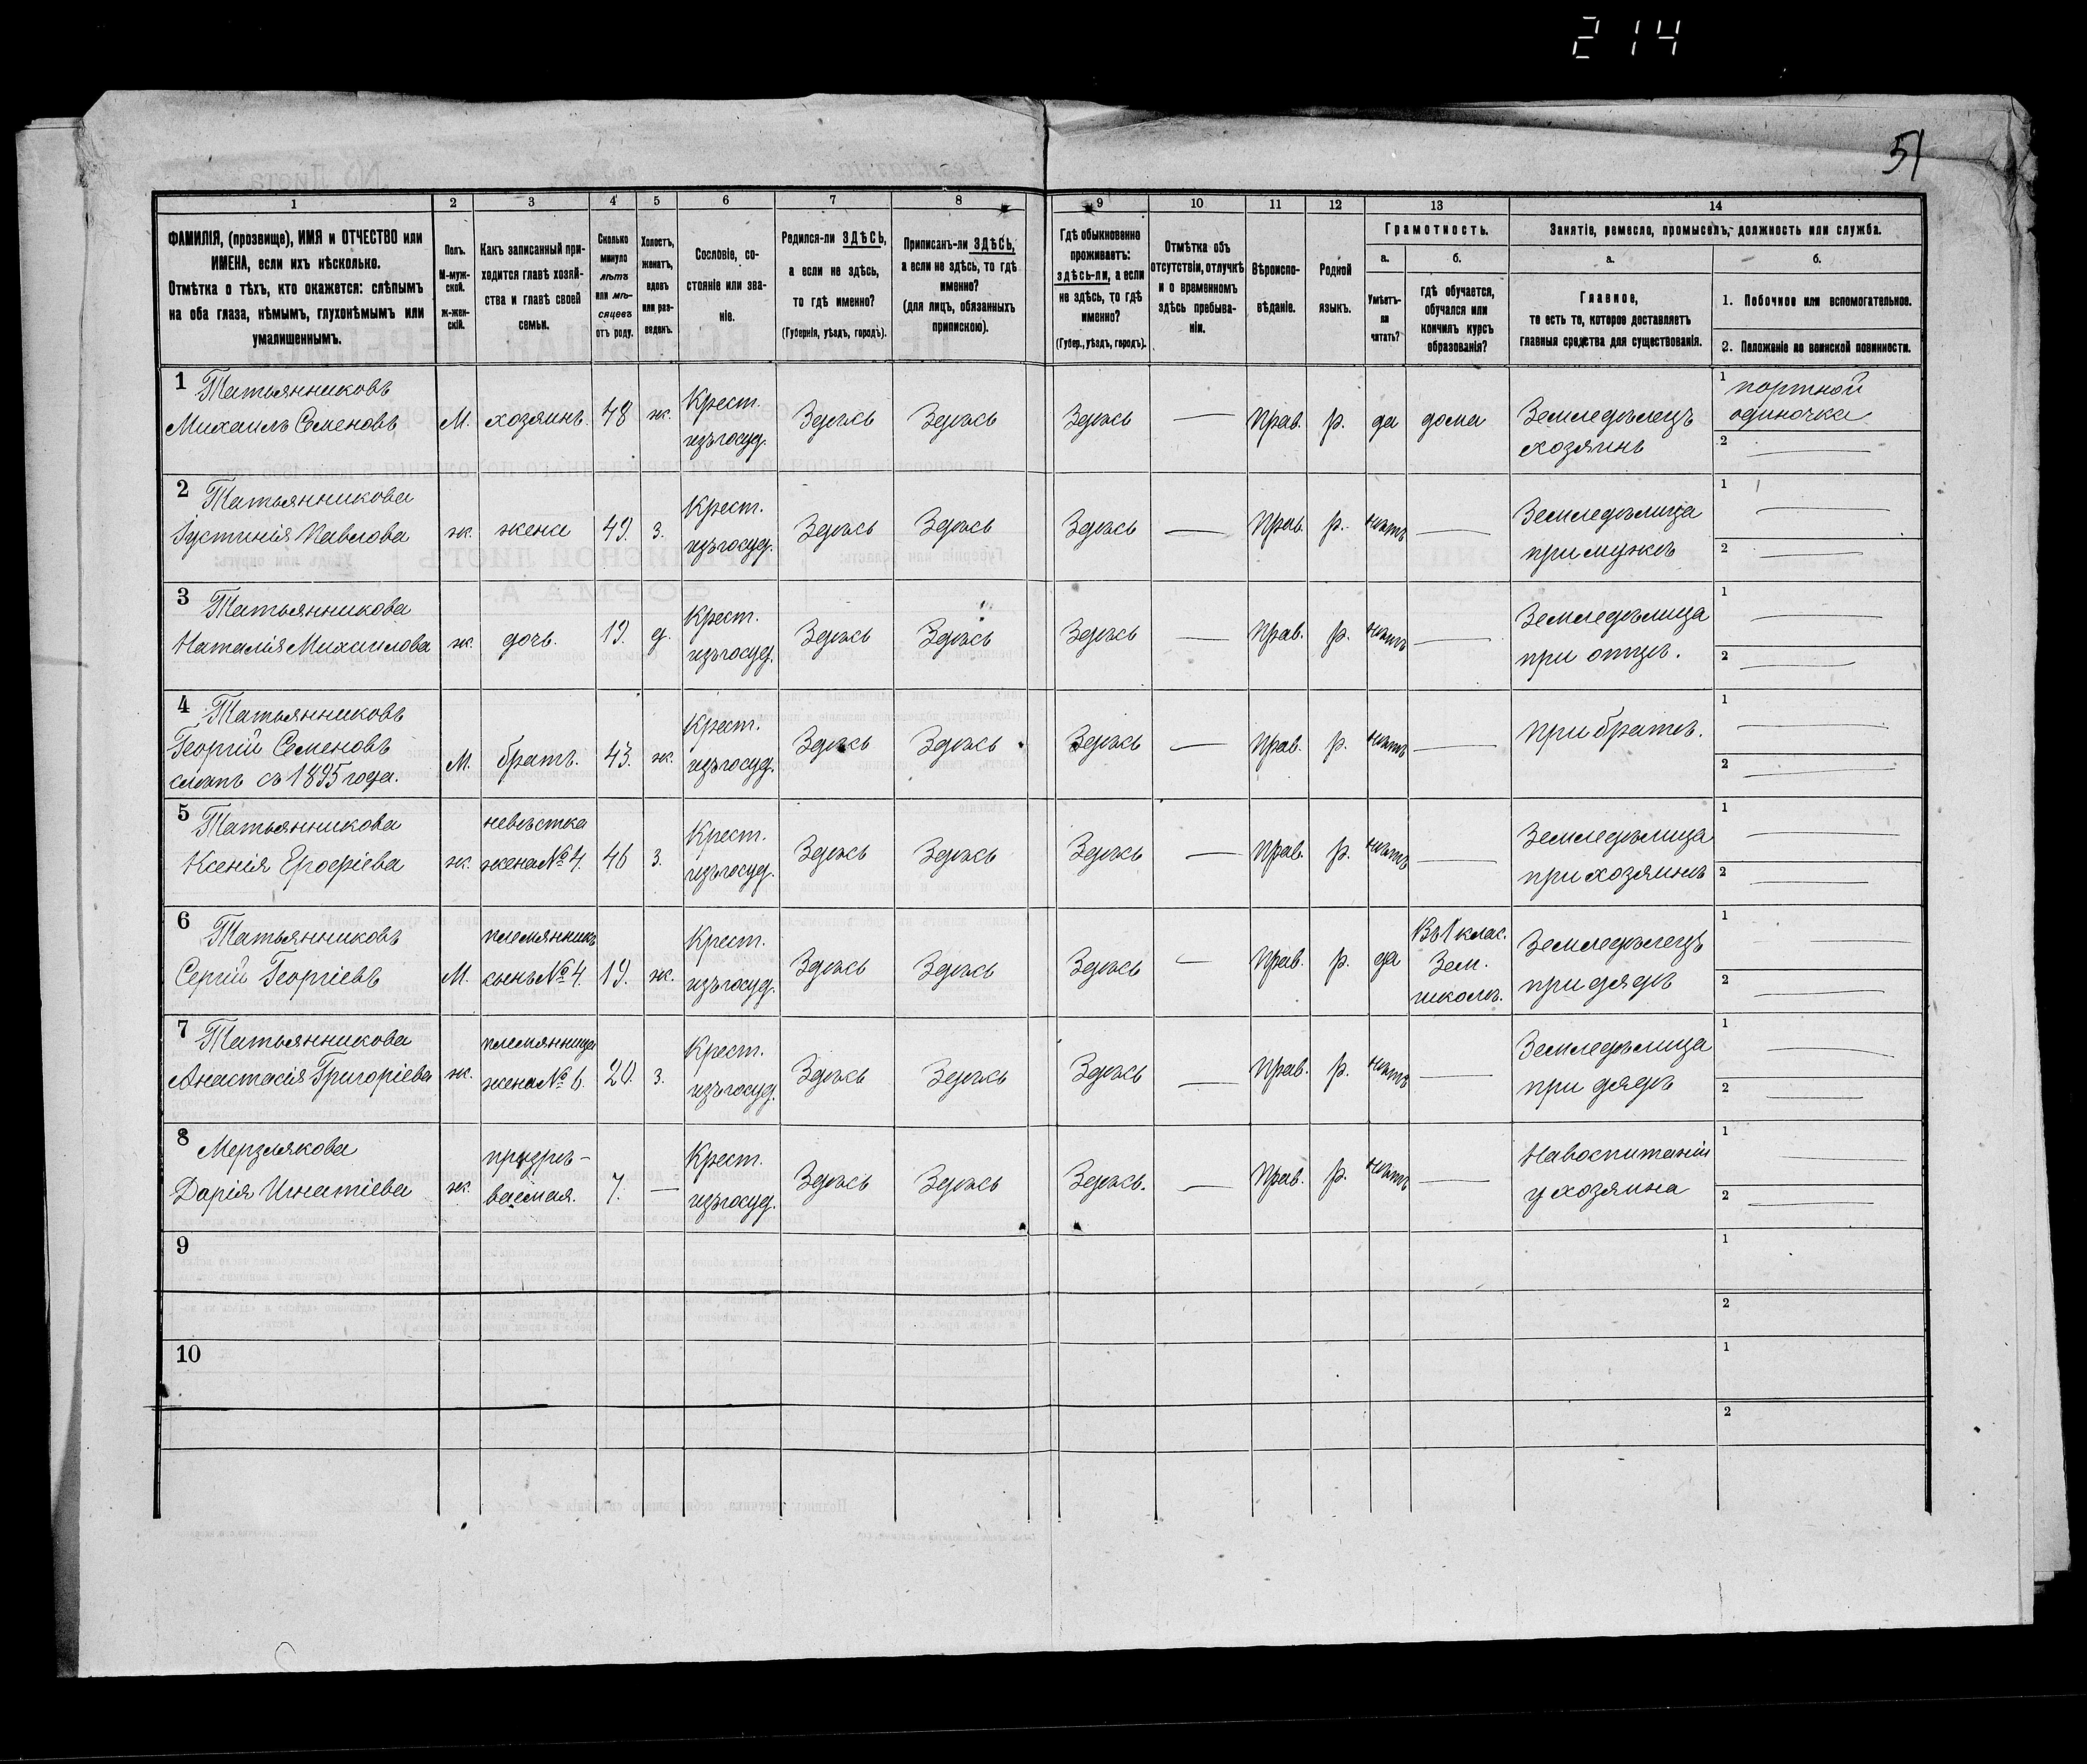 214
51
1
2
3
4
5
6
7
8
9
10
11
12
13
14
ФАМИЛІЯ, (прозвище), ИМЯ и ОТЧЕСТВО или
ИМЕНА, если ихъ нѣсколько.
Отмѣтка о тѣхъ, кто окажется: слѣпымъ
на оба глаза, нѣмымъ, глухонѣмымъ или
умалишеннымъ.
Полъ.
М-муж-
ской.
ж-жен-
скій.
Какъ записанный при-
ходится главѣ хозяй-
ства и главѣ своей
семьи.
Сколько
минуло
лѣтъ
или мѣ-
сяцевъ
отъ роду.
Холостъ,
женатъ,
вдовъ
или раз-
веденъ.
Сословіе, со-
стояніе или зва-
ніе.
Родился-ли ЗДѢСЬ,
а если не здѣсь,
то гдѣ именно?
(Губернія, уѣздъ, городъ).
Приписанъ-ли ЗДѢСЬ,
а если не здѣсь, то гдѣ
именно?
(для лицъ, обязанныхъ
припискою).
Гдѣ обыкновенно
проживаетъ:
здѣсь-ли, а если
не здѣсь, то гдѣ
именно?
(Губер., уѣздъ, городъ).
Отмѣтка объ
отсутствіи, отлучкѣ
и о временномъ
здѣсь пребыва-
ніи.
Вѣроиспо-
вѣданіе.
Родной
языкъ.
Грамотность.
а.
Умѣетъ-
ли
читать?
б.
гдѣ обучается,
обучался или
кончилъ курсъ
образованія?
Занятіе, ремесло, промыселъ, должность или служба.
а.
Главное,
то есть то, которое доставляетъ
главныя средства для существованія.
б.
1. Побочное или вспомогательное.
2. Положеніе по воинской повинности.
1 Татьянниковъ
Михаилъ Семеновъ
М.
хозяинъ.
48
ж.
Крест.
изъ госуд.
Здѣсь
Здѣсь
Здѣсь
—
Прав.
р.
да
дома
Земледѣлецъ
хозяинъ
1 портной
одиночка
2 —
2 Татьянникова
Іустинія Павлова
ж.
жена
49.
з.
Крест.
изъ госуд.
Здѣсь
Здѣсь
Здѣсь
—
Прав.
р.
нѣтъ
—
Земледѣлица
при мужѣ
1 —
2 —
3 Татьянникова
Наталія Михаилова
ж.
дочь.
19.
д.
Крест.
изъ госуд.
Здѣсь
Здѣсь
Здѣсь
—
Прав.
р.
нѣтъ
—
Земледѣлица
при отцѣ.
1 —
2 —
4 Татьянниковъ
Георгій Семеновъ
слѣпъ съ 1895 года.
М.
братъ.
43.
ж.
Крест.
изъ госуд.
Здѣсь
Здѣсь
Здѣсь
—
Прав.
р.
нѣтъ
—
при братѣ.
1 —
2 —
5 Татьянникова
Ксенія Ерофіева
ж.
невѣстка
жена № 4.
46
з.
Крест.
изъ госуд.
Здѣсь
Здѣсь
Здѣсь
—
Прав.
р.
нѣтъ
—
Земледѣлица
при хозяинѣ
1 —
2 —
6 Татьянниковъ
Сергій Георгіевъ
М.
племянникъ
сынъ № 4.
19.
ж.
Крест.
изъ госуд.
Здѣсь
Здѣсь
Здѣсь
—
Прав.
р.
да
Въ 1 клас.
Зем.
школѣ.
Земледѣлецъ
при дядѣ
1 —
2 —
7 Татьянникова
Анастасія Григоріева
ж.
племянница
жена № 6.
20.
з.
Крест.
изъ госуд.
Здѣсь
Здѣсь
Здѣсь
—
Прав.
р.
нѣтъ
—
Земледѣлица
при дядѣ
1 —
2 —
8 Мерзлякова
Дарія Игнатіева
ж.
призрѣ-
ваемая.
7.
—
Крест.
изъ госуд.
Здѣсь
Здѣсь
Здѣсь.
—
Прав.
р.
нѣтъ
—
На воспитаніи
у хозяина
1 —
2 —
9
1
2
10
1
2